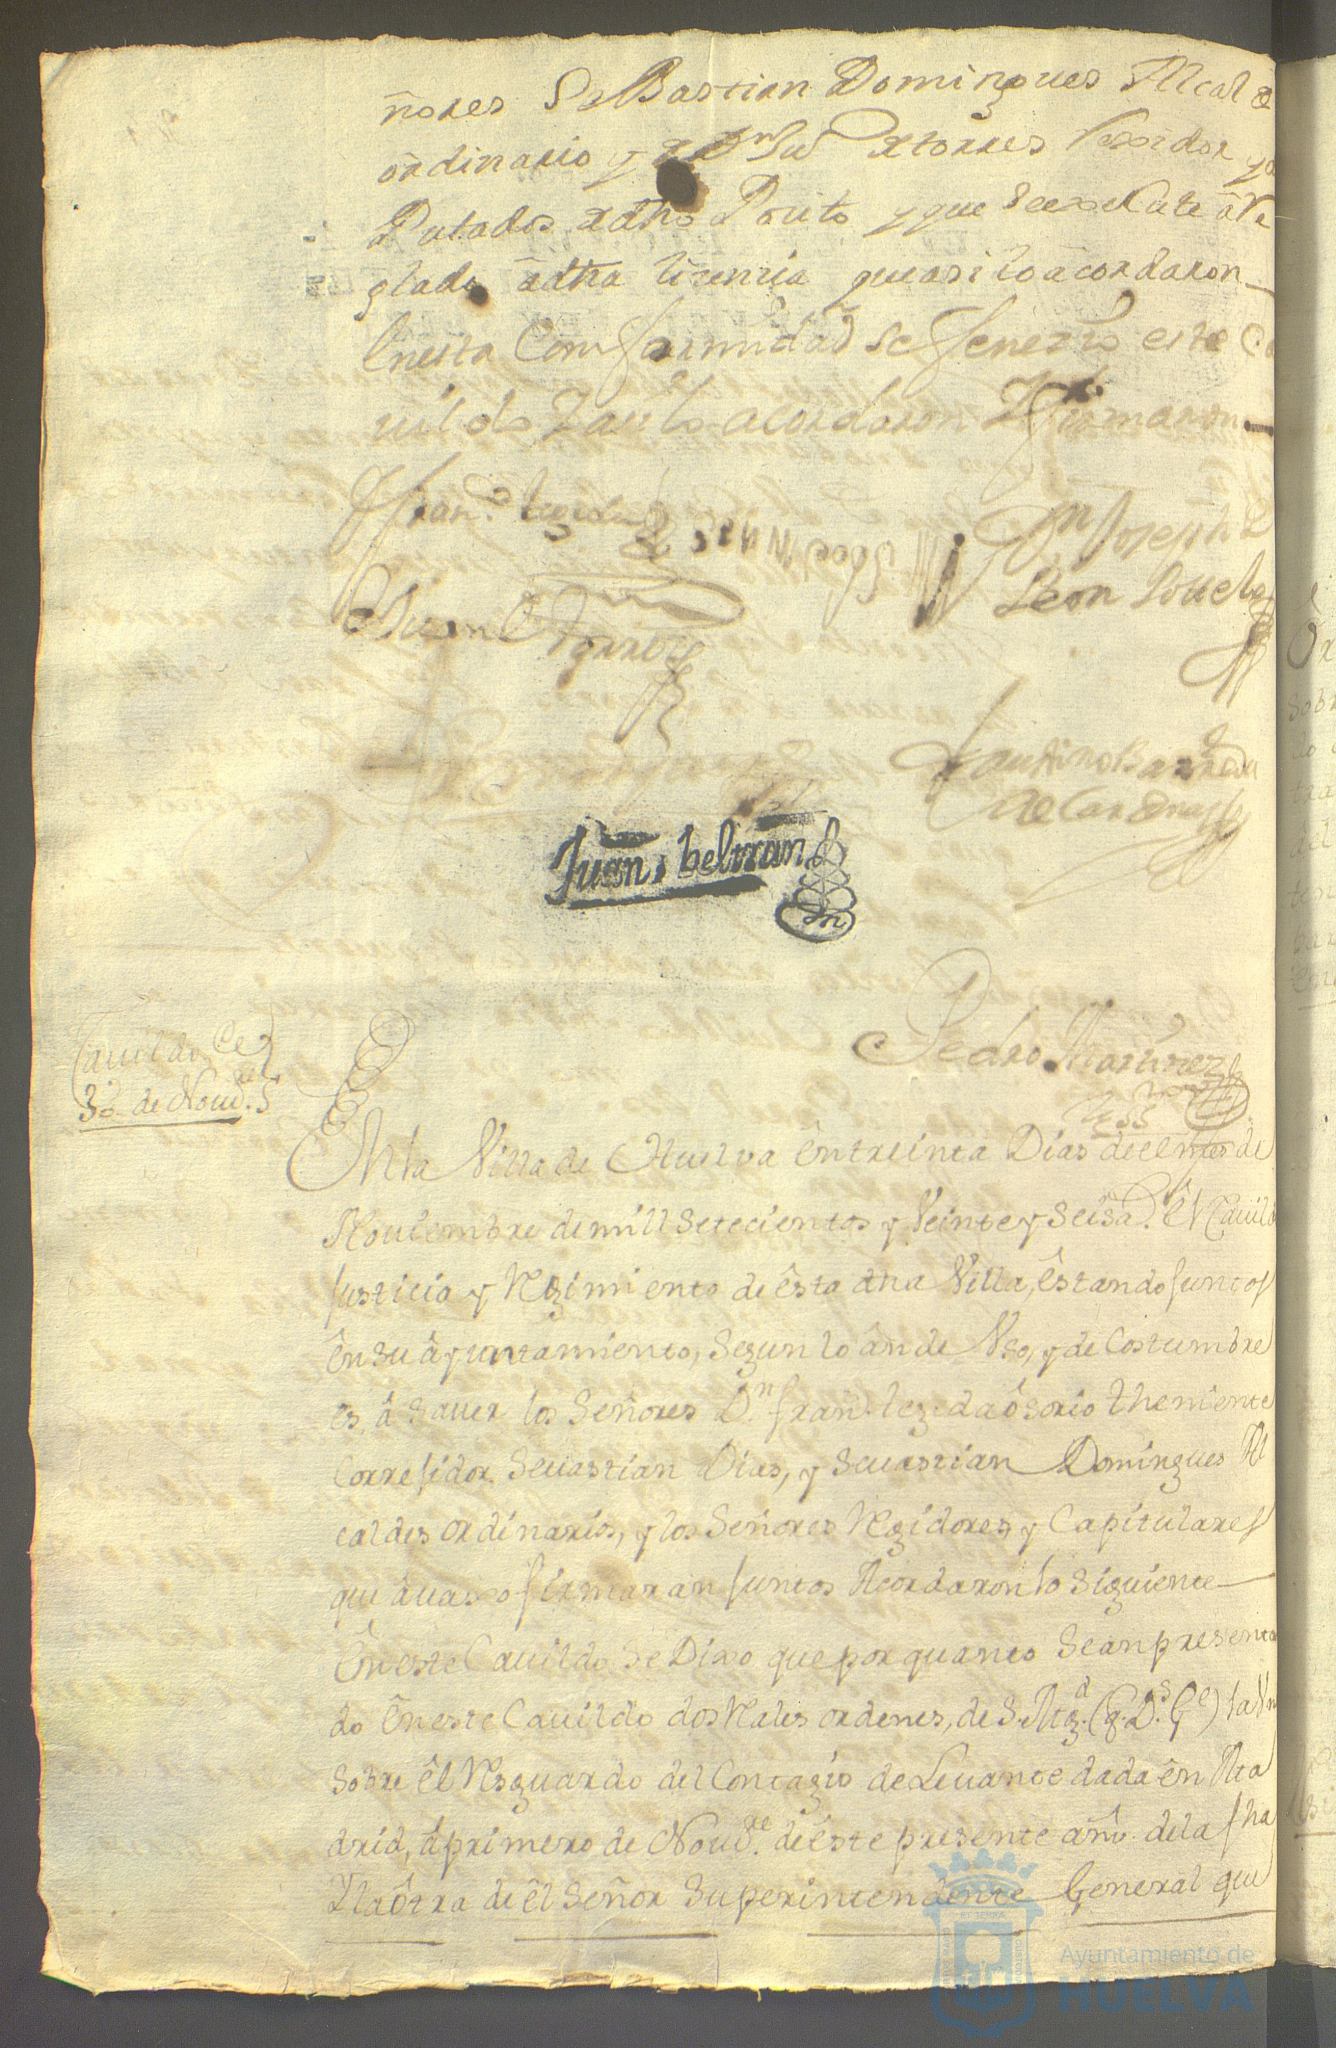 ñores Sebastian Domingues Alcalde
ordinario y a Dn Torres Rexidor y
Putados de dho Pocito y que se execute arre
glado a dha licencia que asi lo acordaron
En esta Comformidad se fenezio este Ca
uildo Y asi lo acordaron Y firmaron
Fran.co
Dn Joseph
Leon
Juan
de Cardenas
Juan, beltran
Pedro Martinez
essno
Cauildo de
30 de Noure
En la Villa de Huelva en treinta Dias de el mes de
Nouiembre de mill setecientos y Veinte y seis a.s el Cauildo
Justicia y Regimiento de esta dha Villa, estando Juntos
en su ayuntamiento, segun lo an de Vso, y de Costumbre
es, a sauer los Señores Dn fran.co lezeda osorio theniente
Corregidor Seuastian Dias, y Seuastian Domingues Al
caldes ordinarios, y los Señores Regidores y Capitulares
qui auaxo firmaran Juntos Acordaron lo siguiente
En este Cauildo se Dixo que por quanto se an presenta
do en este Cauildo dos Rales ordenes, de S. Mag.d (q. D.s G.e) la Vn
sobre el Resguardo del Contagio de Leuante dada en Ma
drid, a primero de Nou.re de este presente año de la fha
Y la otra de el Señor Superintendente General que
Ayuntamiento de
HUELVA